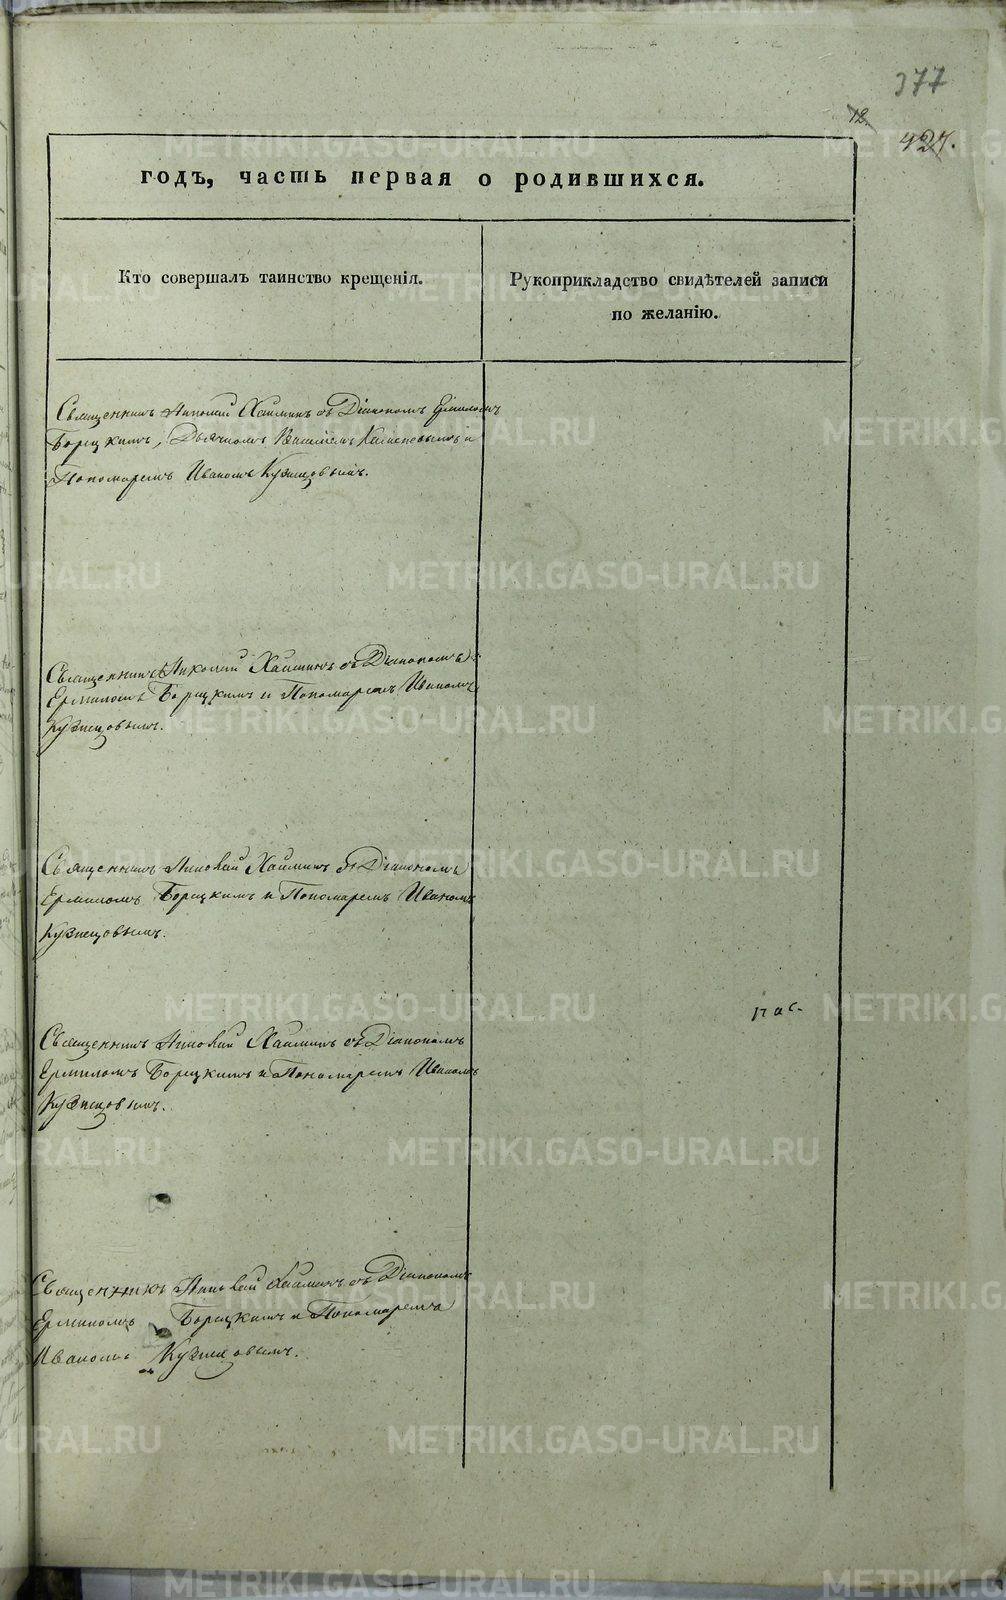 377
12
427.
годъ, часть первая о родившихся.
Кто совершалъ таинство крещенія.
Рукоприкладство свидѣтелей записи
по желанію.
Священникъ Николай Хаминъ съ Діакономъ Ермиломъ
Борецкимъ, Дьячкомъ и
Пономаремъ Иваномъ Кузнецовымъ.
Священникъ Николай Хаминъ съ Діакономъ
Ермиломъ Борецкимъ и Пономаремъ Иваномъ
Кузнецовымъ.
Священникъ Николай Хаминъ съ Діакономъ
Ермиломъ Борецкимъ и Пономаремъ Иваномъ
Кузнецовымъ.
Священникъ Николай Хаминъ съ Діакономъ
Ермиломъ Борецкимъ и Пономаремъ Иваномъ
Кузнецовымъ.
Священникъ Николай Хаминъ съ Діакономъ
Ермиломъ Борецкимъ и Пономаремъ
Иваномъ Кузнецовымъ.
METRIKI.GASO-URAL.RU